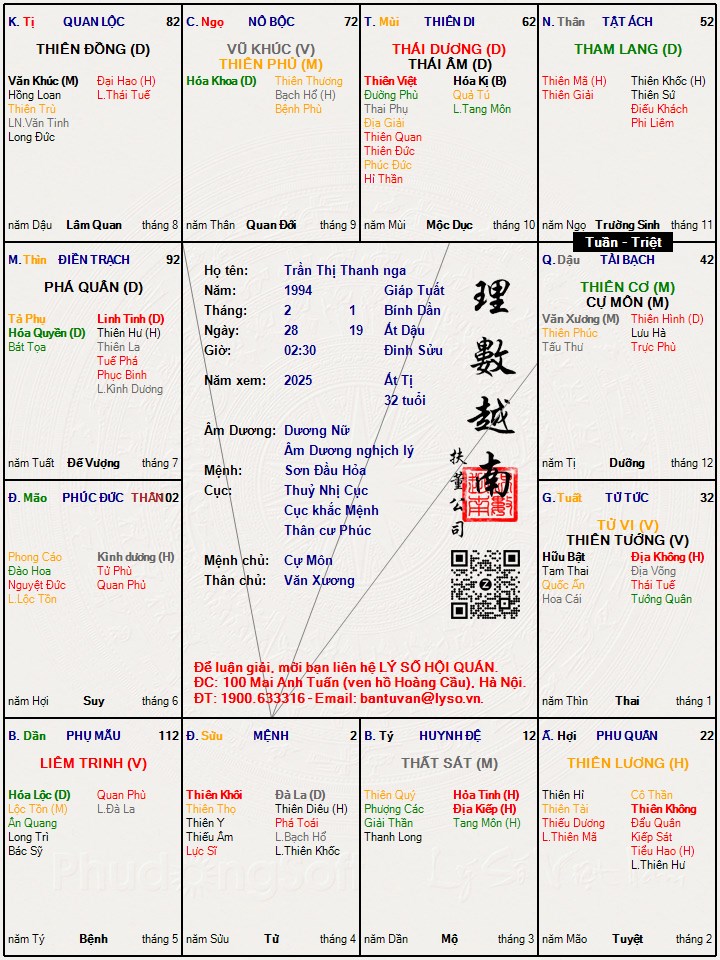 K. Tị QUAN LỘC 82
THIÊN ĐỒNG (D)
Văn Khúc (M) Đại Hao (H)
Hồng Loan L.Thái Tuế
Thiên Trù
LN.Văn Tinh
Long Đức
năm Dậu Lâm Quan tháng 8
C. Ngọ NÔ BỘC 72
VŨ KHÚC (V)
THIÊN PHỦ (M)
Hóa Khoa (D) Thiên Thương
Bạch Hổ (H)
Bệnh Phù
năm Thân Quan Đới tháng 9
T. Mùi THIÊN DI 62
THÁI DƯƠNG (D)
THÁI ÂM (D)
Thiên Việt Hóa Kị (B)
Đường Phù Quả Tú
Thai Phụ L.Tang Môn
Địa Giải
Thiên Quan
Thiên Đức
Phúc Đức
Hỉ Thần
năm Mùi Mộc Dục tháng 10
N. Thân TẬT ÁCH 52
THAM LANG (D)
Thiên Mã (H) Thiên Khốc (H)
Thiên Giải Thiên Sứ
Điếu Khách
Phi Liêm
năm Ngọ Trường Sinh tháng 11
Tuần - Triệt
M. Thìn ĐIỀN TRẠCH 92
PHÁ QUÂN (D)
Tả Phụ Linh Tinh (D)
Hóa Quyền (D) Thiên Hư (H)
Bát Tọa Thiên La
Tuế Phá
Phục Binh
L.Kình Dương
năm Tuất Đế Vượng tháng 7
Họ tên: Trần Thị Thanh nga
Năm: 1994 Giáp Tuất
Tháng: 2 1 Bính Dần
Ngày: 28 19 Ất Dậu
Giờ: 02:30 Đinh Sửu
Năm xem: 2025 Ất Tị
32 tuổi
Âm Dương: Dương Nữ
Âm Dương nghịch lý
Mệnh: Sơn Đầu Hỏa
Cục: Thuỷ Nhị Cục
Cục khắc Mệnh
Thân cư Phúc
Mệnh chủ: Cự Môn
Thân chủ: Văn Xương
理數越南
扶董公司
Để luận giải, mời bạn liên hệ LÝ SỐ HỘI QUÁN.
ĐC: 100 Mai Anh Tuấn (ven hồ Hoàng Cầu), Hà Nội.
ĐT: 1900.633316 - Email: bantuvan@lyso.vn.
Q. Dậu TÀI BẠCH 42
THIÊN CƠ (M)
CỰ MÔN (M)
Văn Xương (M) Thiên Hình (D)
Thiên Phúc Lưu Hà
Tấu Thư Trực Phù
năm Tị Dưỡng tháng 12
Đ. Mão PHÚC ĐỨC THÂN 102
Phong Cáo Kình dương (H)
Đào Hoa Tử Phù
Nguyệt Đức Quan Phủ
L.Lộc Tồn
năm Hợi Suy tháng 6
G. Tuất TỬ TỨC 32
TỬ VI (V)
THIÊN TƯỚNG (V)
Hữu Bật Địa Không (H)
Tam Thai Địa Võng
Quốc Ấn Thái Tuế
Hoa Cái Tướng Quân
năm Thìn Thai tháng 1
B. Dần PHỤ MẪU 112
LIÊM TRINH (V)
Hóa Lộc (D) Quan Phù
Lộc Tồn (M) L.Đà La
Ân Quang
Long Trì
Bác Sỹ
năm Tý Bệnh tháng 5
Đ. Sửu MỆNH 2
Thiên Khôi Đà La (D)
Thiên Thọ Thiên Diêu (H)
Thiên Y Phá Toái
Thiếu Âm L.Bạch Hổ
Lực Sĩ L.Thiên Khốc
năm Sửu Tử tháng 4
B. Tý HUYNH ĐỆ 12
THẤT SÁT (M)
Thiên Quý Hỏa Tinh (H)
Phượng Các Địa Kiếp (H)
Giải Thần Tang Môn (H)
Thanh Long
năm Dần Mộ tháng 3
Ấ. Hợi PHU QUÂN 22
THIÊN LƯƠNG (H)
Thiên Hỉ Cô Thần
Thiên Tài Thiên Không
Thiếu Dương Đẩu Quân
L.Thiên Mã Kiếp Sát
Tiểu Hao (H)
L.Thiên Hư
năm Mão Tuyệt tháng 2